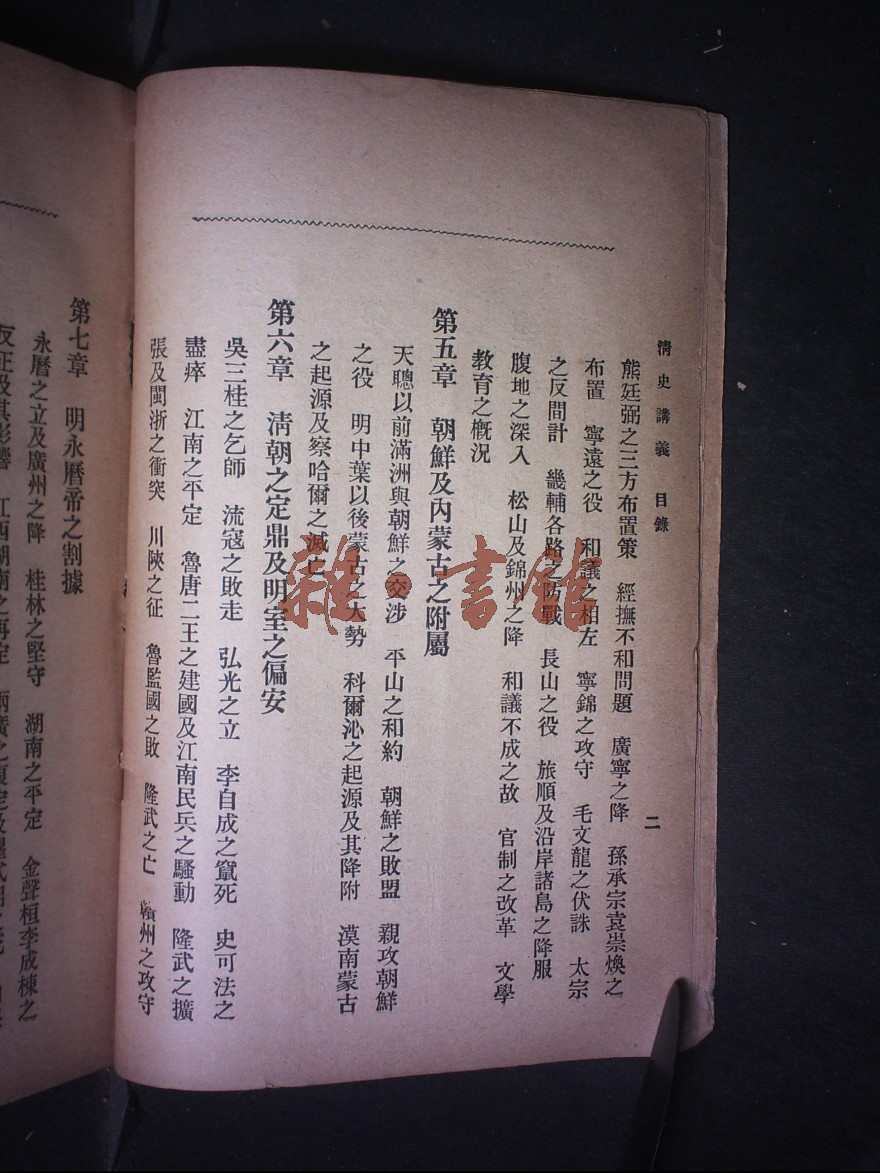 清史講義 目錄 二
熊廷弼之三方布置策 經撫不和問題 廣寧之降 孫承宗袁崇煥之
布置 寧遠之役 和議之相左 寧錦之攻守 毛文龍之伏誅 太宗
之反間計 畿輔各路之防戰 長山之役 旅順及沿岸諸島之降服
腹地之深入 松山及錦州之降 和議不成之故 官制之改革 文學
教育之概況
第五章 朝鮮及內蒙古之附屬
天聰以前滿洲與朝鮮之交涉 平山之和約 朝鮮之敗盟 親攻朝鮮
之役 明中葉以後蒙古之大勢 科爾沁之起源及其降附 漠南蒙古
之起源及察哈爾之滅亡
第六章 淸朝之定鼎及明室之偏安
吳三桂之乞師 流寇之敗走 弘光之立 李自成之竄死 史可法之
盡瘁 江南之平定 魯唐二王之建國及江南民兵之騷動 隆武之擴
張及閩浙之衝突 川陝之征 魯監國之敗 隆武之亡 贛州之攻守
第七章 明永曆帝之割據
永曆之立及廣州之降 桂林之堅守 湖南之平定 金聲桓李成棟之
反正及其影響 江西湖南之再定
雜·書館